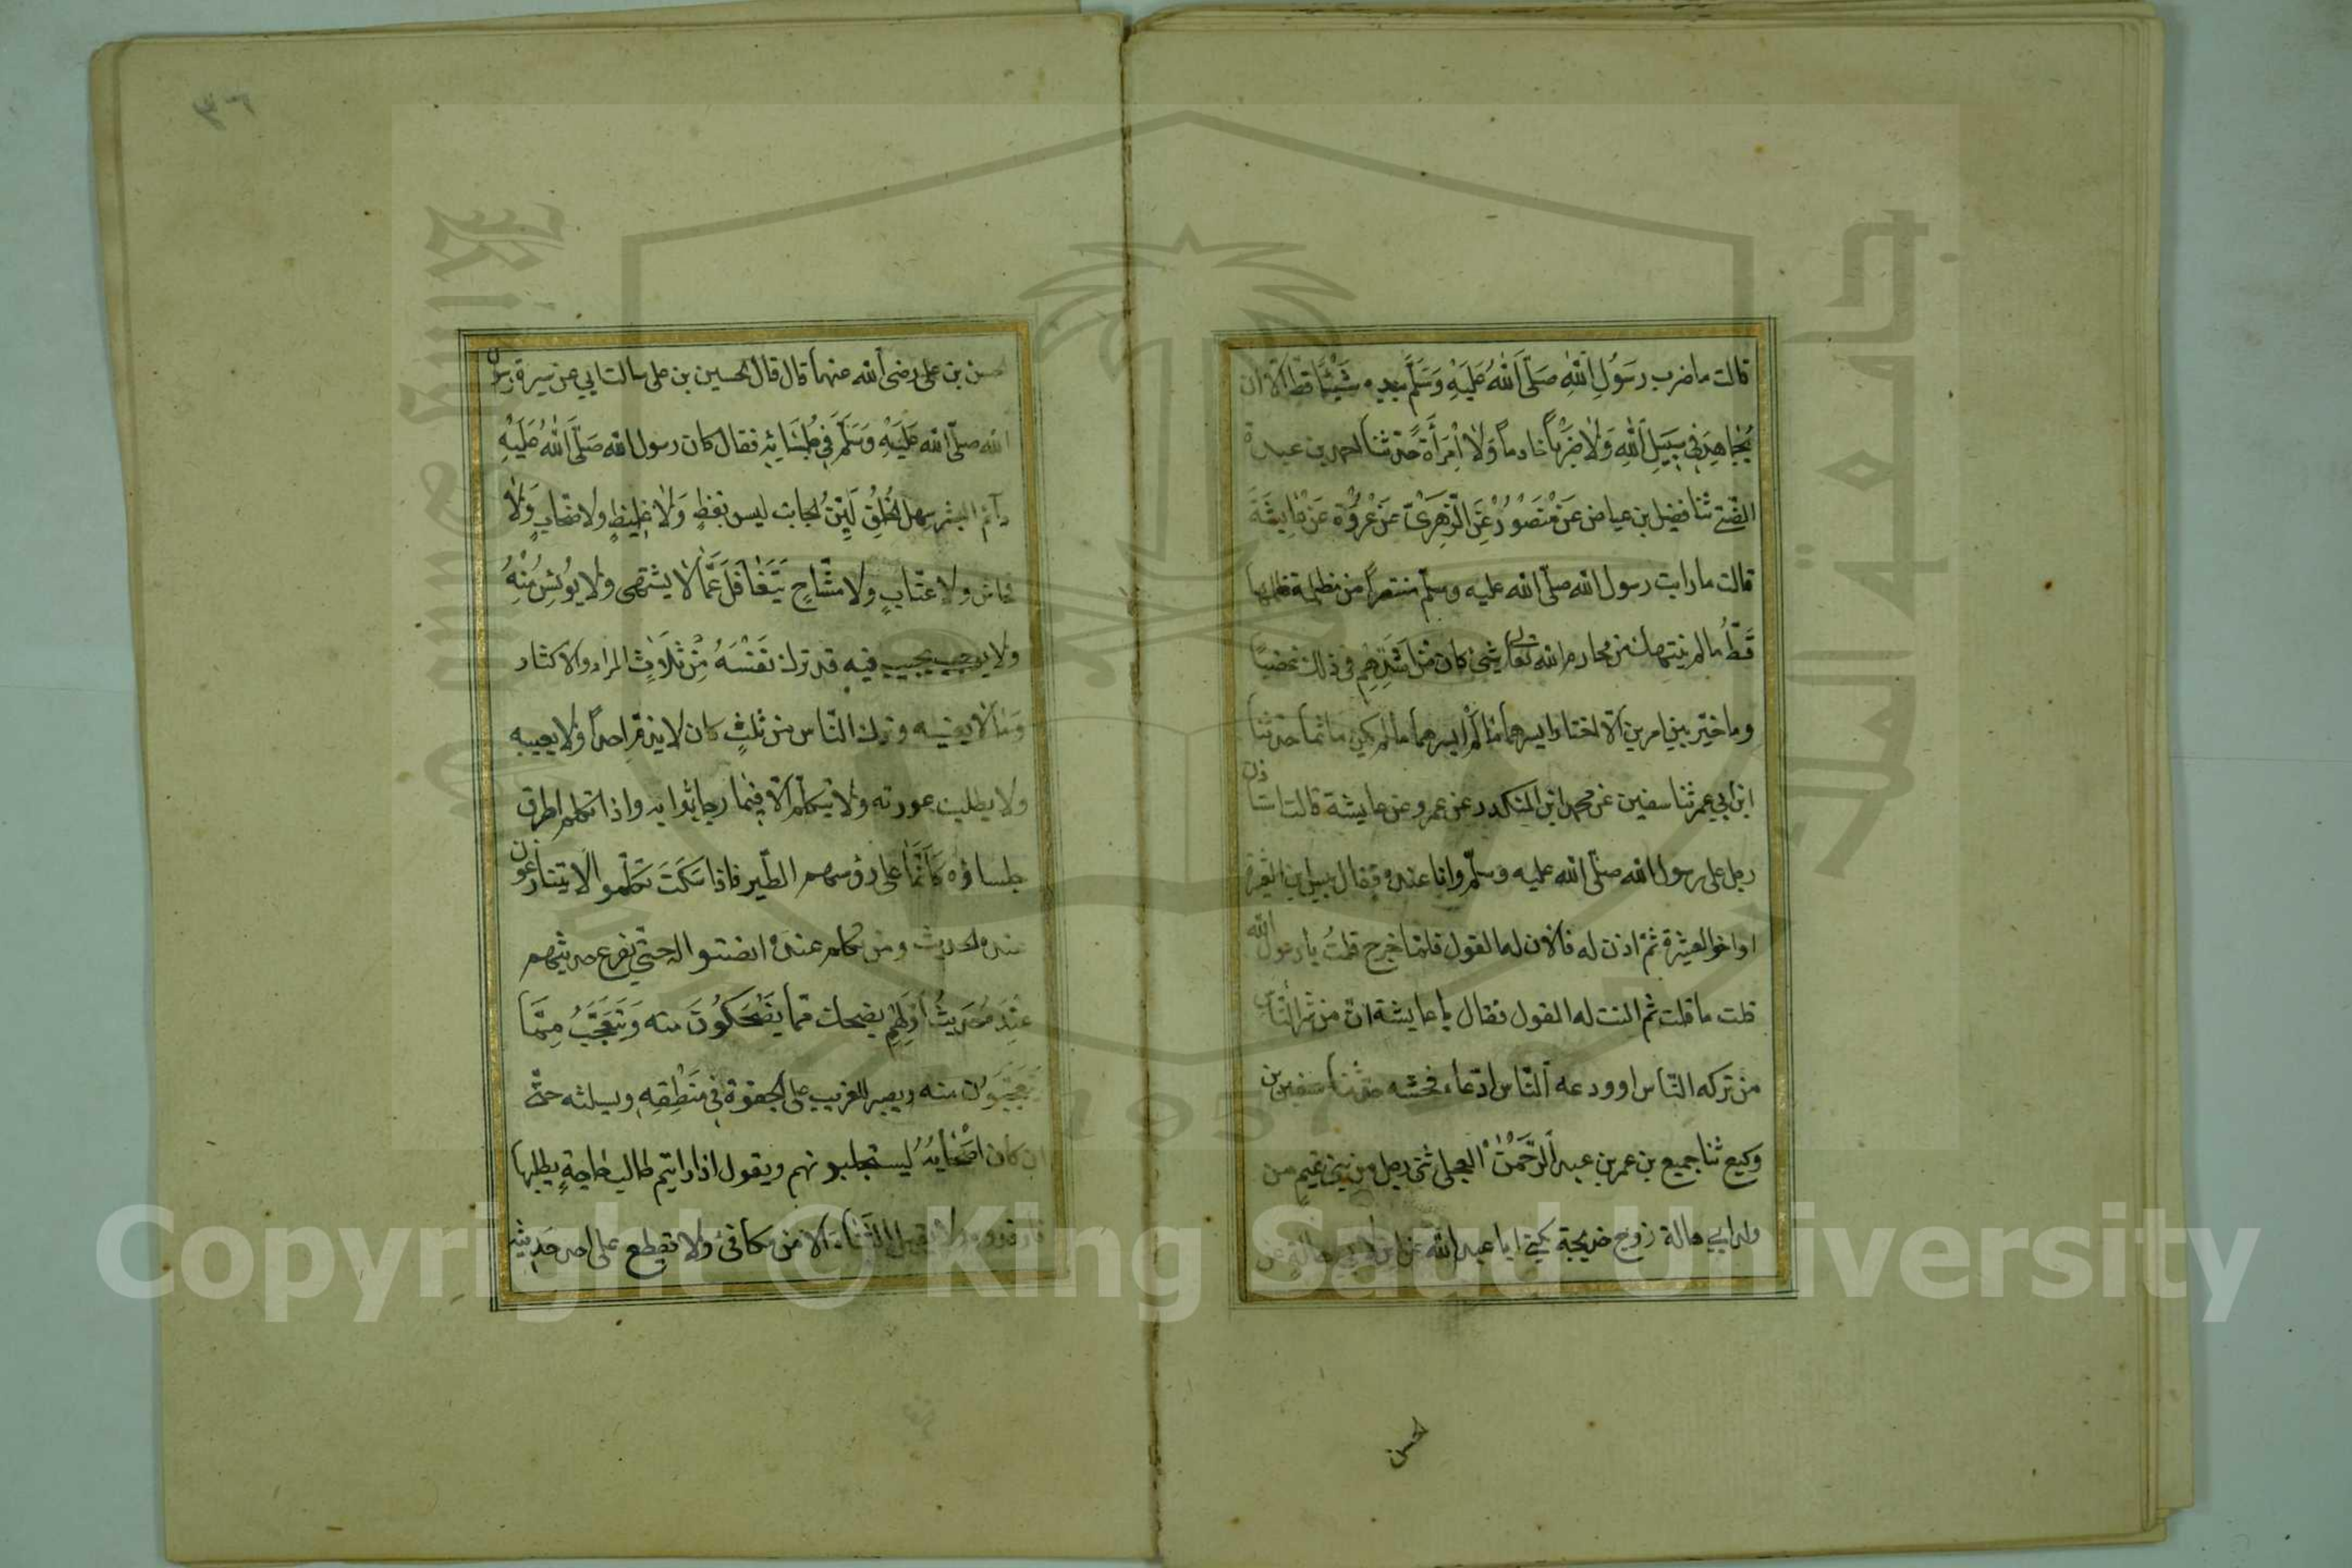 قالت ما ضرب رسول الله صلى الله عليه وسلم بيده شيئا قط الا ان
يجاهد في سبيل الله ولا ضرب خادما ولا امرأة حدثنا احمد بن عبدة
الضبي ثنا فضيل بن عياض عن منصور عن الزهري عن عروة عن عايشة
قالت ما رايت رسول الله صلى الله عليه وسلم منتصرا من مظلمة ظلمها
قط ما لم ينتهك من محارم الله تعالى شئ كان من اشدهم في ذلك غضبا
وما خير بين امرين الا اختار ايسرهما ما لم يكن ماثما حدثنا
ابن ابي عمر ثنا سفين عن محمد ابن المنكدر عن عروة عن عايشة قالت استاذن
رجل على رسول الله صلى الله عليه وسلم وانا عنده فقال بيس ابن العشيرة
او اخو العشيرة ثم اذن له فالان له القول فلما خرج قلت يا رسول الله
قلت ما قلت ثم النت له القول فقال يا عايشة ان من شر الناس
من تركه الناس او ودعه الناس اتقاء فحشه حدثنا سفين بن
وكيع ثنا جميع بن عمر بن عبد الرحمن العجلي ثنى رجل من بني تميم من
ولد ابي هالة زوج خديجة يكنى ابا عبد الله عن ابن لابي هالة عن
لحسن
حسن بن علي رضى الله عنهما قال قال الحسين بن علي سالت ابي عن سيرة رسول
الله صلى الله عليه وسلم في جلسايه فقال كان رسول الله صلى الله عليه
دائم البشر سهل الخلق لين الجانب ليس بفظ ولا غليظ ولا صخاب ولا
فحاش ولا عتاب ولا مشاح يتغافل عما لا يشتهى ولا يوئس منه
ولا يجيب فيه قد ترك نفسه من ثلاث المراء والاكثار
وما لا يعنيه وترك الناس من ثلث كان لا يذم احدا ولا يعيبه
ولا يطلب عورته ولا يتكلم الا فيما رجا ثوابه واذا تكلم اطرق
جلساؤه كانما على رؤسهم الطير فاذا سكت تكلموا لا يتنازعون
عنده الحديث ومن تكلم عنده انصتوا له حتى يفرغ حديثهم
عنده حديث اولهم يضحك مما يضحكون منه ويتعجب مما
يتعجبون منه ويصبر للغريب على الجفوة في منطقه ومسلته حتى
ان كان اصحابه ليستجلبونهم ويقول اذا رايتم طالب حاجة يطلبها
فارفدوه ولا يقبل الثناء الا من مكافئ ولا يقطع على احد حديثه
٣٦
Copyright © King Saud University
1957